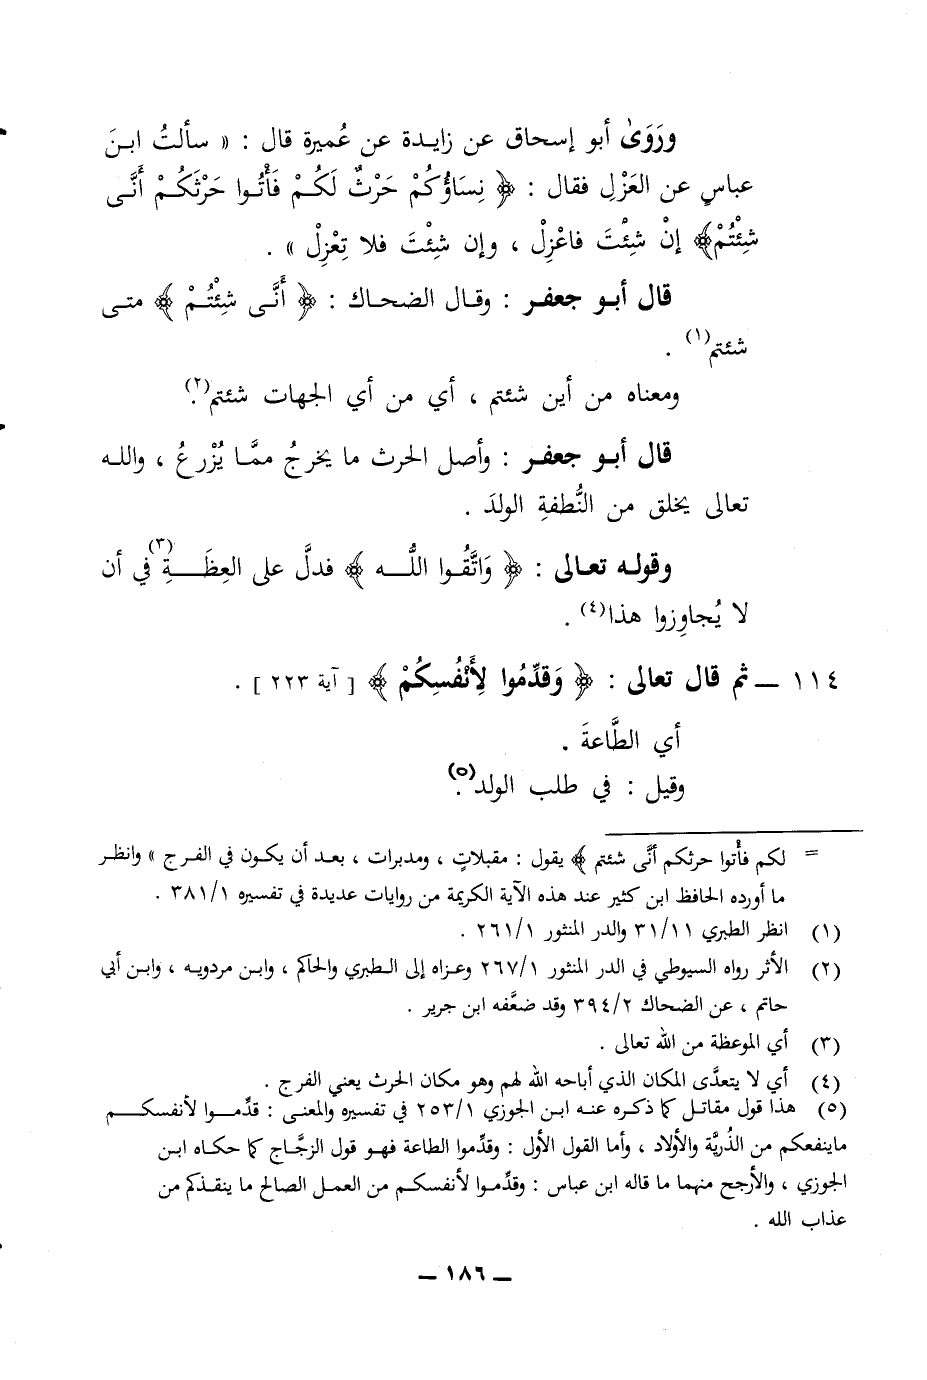 ورَوَىٰ أبو إسحاق عن زايدة عن عُميرة قال : « سألتُ ابنَ
عباسٍ عن العَزْلِ فقال : ﴿ نِسَاؤُكُمْ حَرْثٌ لَكُمْ فَأْتُوا حَرْثَكُمْ أَنَّى
شِئْتُمْ﴾ إنْ شِئْتَ فاعْزِلْ ، وإن شِئْتَ فلا تِعْزِلْ » .
قال أبو جعفر : وقال الضحاك : ﴿ أَنَّى شِئْتُمْ ﴾ متى
شئتم(١) .
ومعناه من أين شئتم ، أي من أي الجهات شئتم(٢).
قال أبو جعفر : وأصل الحرث ما يخرجُ ممَّا يُزْرعُ ، والله
تعالى يخلق من النُّطفةِ الولدَ .
وقوله تعالى : ﴿ وَاتَّقُوا اللَّه ﴾ فدلَّ على العِظَةِ(٣) في أن
لا يُجاوِزوا هذا(٤) .
١١٤ ــ ثم قال تعالى : ﴿ وَقَدِّمُوا لِأَنْفُسِكُمْ ﴾ [ آية ٢٢٣ ] .
أي الطَّاعةَ .
وقيل : في طلب الولد(٥).
= لكم فأْتوا حرثكم أنَّى شئتم ﴾ يقول : مقبلاتٍ ، ومدبرات ، بعد أن يكون في الفرج » وانظر
ما أورده الحافظ ابن كثير عند هذه الآية الكريمة من روايات عديدة في تفسيره ٣٨١/١ .
(١) انظر الطبري ٣١/١١ والدر المنثور ٢٦١/١ .
(٢) الأثر رواه السيوطي في الدر المنثور ٢٦٧/١ وعزاه إلى الطبري والحاكم ، وابن مردويه ، وابن أبي
حاتم ، عن الضحاك ٣٩٤/٢ وقد ضعَّفه ابن جرير .
(٣) أي الموعظة من الله تعالى .
(٤) أي لا يتعدَّى المكان الذي أباحه الله لهم وهو مكان الحرث يعني الفرج .
(٥) هذا قول مقاتل كما ذكره عنه ابن الجوزي ٢٥٣/١ في تفسيره والمعنى : قدِّموا لأنفسكم
ماينفعكم من الذُريَّة والأولاد ، وأما القول الأول : وقدِّموا الطاعة فهو قول الزجَّاج كما حكاه ابن
الجوزي ، والأرجح منهما ما قاله ابن عباس : وقدِّموا لأنفسكم من العمل الصالح ما ينقذكم من
عذاب الله .
ــ ١٨٦ ــ